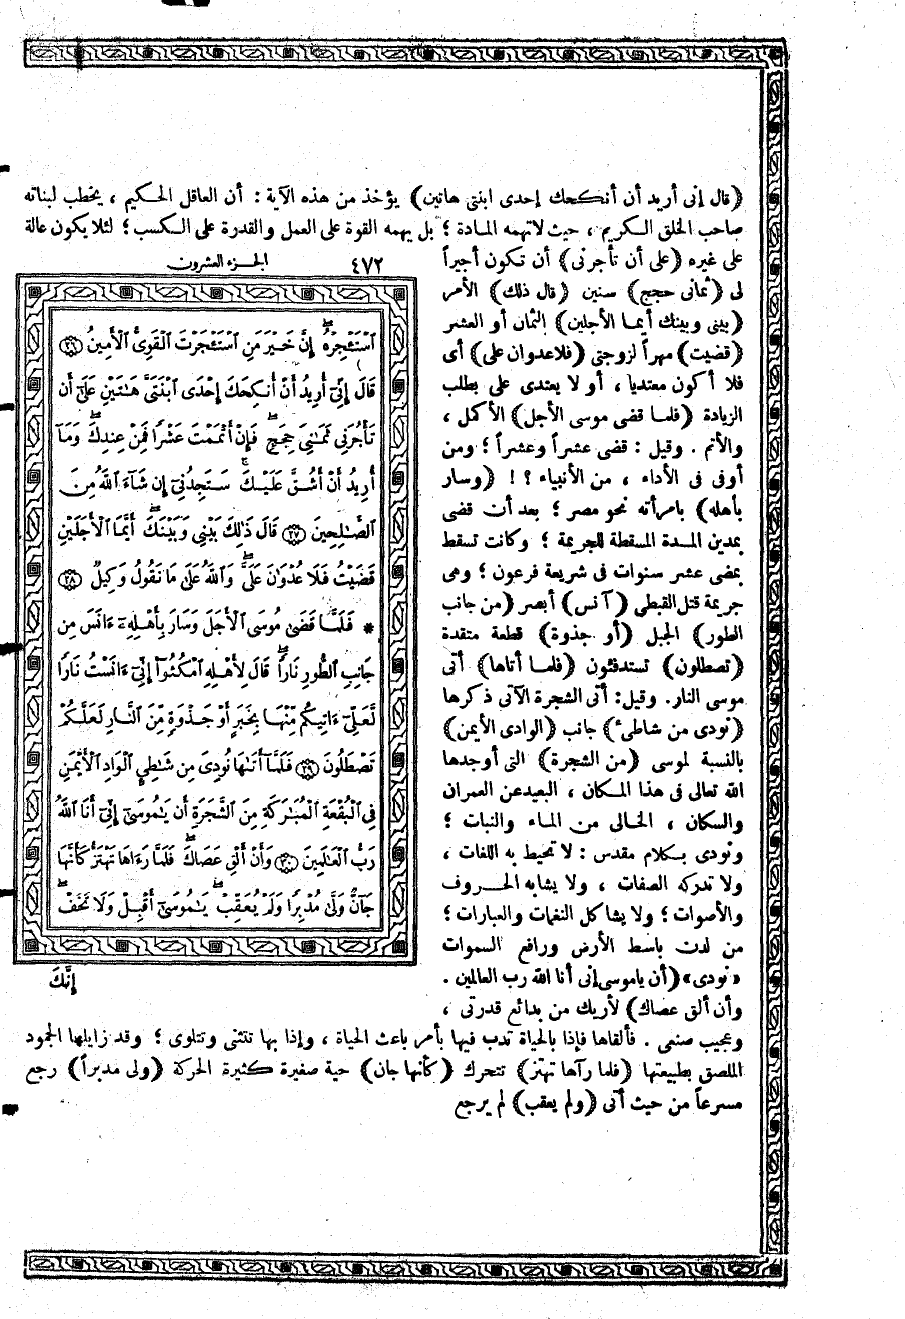 (قال إنى أريد أن أنكحك إحدى ابنتى هاتين) يؤخذ من هذه الآية : أن العاقل الحكيم ، يخطب لبناته
صاحب الخلق الكريم ، حيث لاتهمه المادة ؛ بل يهمه القوة على العمل والقدرة على الكسب ؛ لئلا يكون عالة
على غيره (على أن تأجرنى) أن تكون أجيراً
لى (ثمانى حجج) سنين (قال ذلك) الأمر
(بينى وبينك أيما الأجلين) الثمان أو العشر
(قضيت) مهراً لزوجتى (فلاعدوان على) أى
فلا أكون معتدياً ، أو لا يعتدى على بطلب
الزيادة (فلما قضى موسى الأجل) الأكمل ،
والأتم . وقيل : قضى عشراً وعشراً ؛ ومن
أوفى فى الأداء ، من الأنبياء ؟ ! (وسار
بأهله) بامرأته نحو مصر ؛ بعد أن قضى
بمدين المدة المسقطة للجريمة ؛ وكانت تسقط
بمضى عشر سنوات فى شريعة فرعون ؛ وهى
جريمة قتل القبطى (آنس) أبصر (من جانب
الطور) الجبل (أو جذوة) قطعة متقدة
(تصطلون) تستدفئون (فلما أتاها) أتى
موسى النار. وقيل : أتى الشجرة الآتى ذكرها
(نودى من شاطىء) جانب (الوادى الأيمن)
بالنسبة لموسى (من الشجرة) التى أوجدها
الله تعالى فى هذا المكان ، البعيد عن العمران
والسكان ، الخالى من الماء والنبات ؛
ونودى بكلام مقدس : لا تحيط به اللغات ،
ولا تدركه الصفات ، ولا يشابه الحروف
والأصوات ؛ ولا يشاكل النغمات والعبارات ؛
من لدن باسط الأرض ورافع السموات
«نودى» (أن ياموسى إنى أنا الله رب العالمين .
وأن ألق عصاك) لأريك من بدائع قدرتى ،
وعجيب صنعى . فألقاها فإذا بالحياة تدب فيها بأمر باعث الحياة ، وإذا بها تتثنى وتتلوى ؛ وقد زايلها الجمود
الملصق بطبيعتها (فلما رآها تهتز) تتحرك (كأنها جان) حية صغيرة كثيرة الحركة (ولى مدبراً) رجع
مسرعاً من حيث أتى (ولم يعقب) لم يرجع
٤٧٢ الجزء العشرون
ٱسْتَـْٔجِرْهُ ۖ إِنَّ خَيْرَ مَنِ ٱسْتَـْٔجَرْتَ ٱلْقَوِىُّ ٱلْأَمِينُ ٢٦
قَالَ إِنِّىٓ أُرِيدُ أَنْ أُنكِحَكَ إِحْدَى ٱبْنَتَىَّ هَـٰتَيْنِ عَلَىٰٓ أَن
تَأْجُرَنِى ثَمَـٰنِىَ حِجَجٍ ۖ فَإِنْ أَتْمَمْتَ عَشْرًا فَمِنْ عِندِكَ ۖ وَمَآ
أُرِيدُ أَنْ أَشُقَّ عَلَيْكَ ۚ سَتَجِدُنِىٓ إِن شَآءَ ٱللَّهُ مِنَ
ٱلصَّـٰلِحِينَ ٢٧ قَالَ ذَٰلِكَ بَيْنِى وَبَيْنَكَ ۖ أَيَّمَا ٱلْأَجَلَيْنِ
قَضَيْتُ فَلَا عُدْوَٰنَ عَلَىَّ ۖ وَٱللَّهُ عَلَىٰ مَا نَقُولُ وَكِيلٌ ٢٨
* فَلَمَّا قَضَىٰ مُوسَى ٱلْأَجَلَ وَسَارَ بِأَهْلِهِۦٓ ءَانَسَ مِن
جَانِبِ ٱلطُّورِ نَارًا ۖ قَالَ لِأَهْلِهِ ٱمْكُثُوٓا۟ إِنِّىٓ ءَانَسْتُ نَارًا
لَّعَلِّىٓ ءَاتِيكُم مِّنْهَا بِخَبَرٍ أَوْ جَذْوَةٍ مِّنَ ٱلنَّارِ لَعَلَّكُمْ
تَصْطَلُونَ ٢٩ فَلَمَّآ أَتَىٰهَا نُودِىَ مِن شَـٰطِئِ ٱلْوَادِ ٱلْأَيْمَنِ
فِى ٱلْبُقْعَةِ ٱلْمُبَـٰرَكَةِ مِنَ ٱلشَّجَرَةِ أَن يَـٰمُوسَىٰٓ إِنِّىٓ أَنَا ٱللَّهُ
رَبُّ ٱلْعَـٰلَمِينَ ٣٠ وَأَنْ أَلْقِ عَصَاكَ ۖ فَلَمَّا رَءَاهَا تَهْتَزُّ كَأَنَّهَا
جَآنٌّ وَلَّىٰ مُدْبِرًا وَلَمْ يُعَقِّبْ ۚ يَـٰمُوسَىٰٓ أَقْبِلْ وَلَا تَخَفْ ۖ
إِنَّكَ